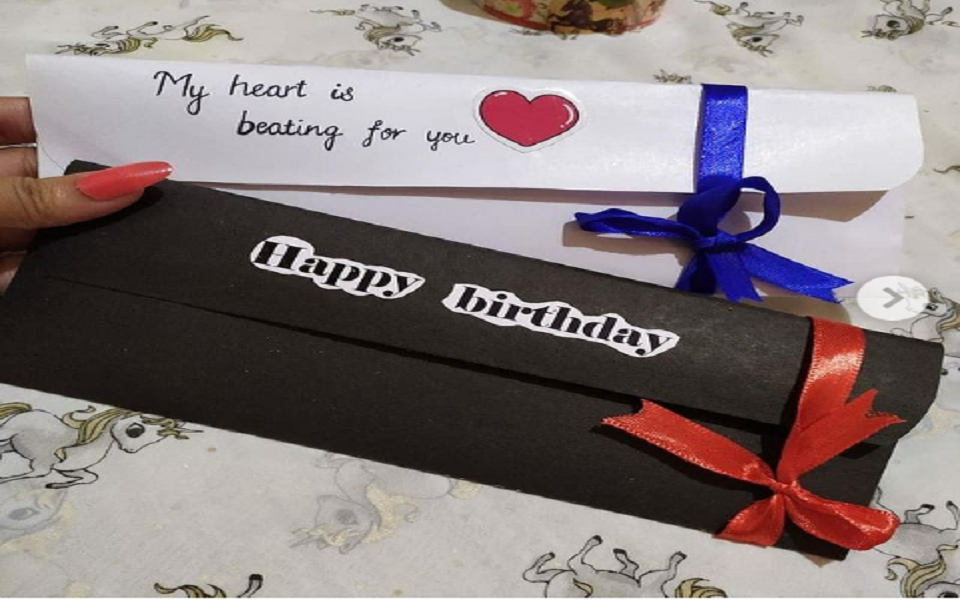 My heart is
beating for you
Happy birthday